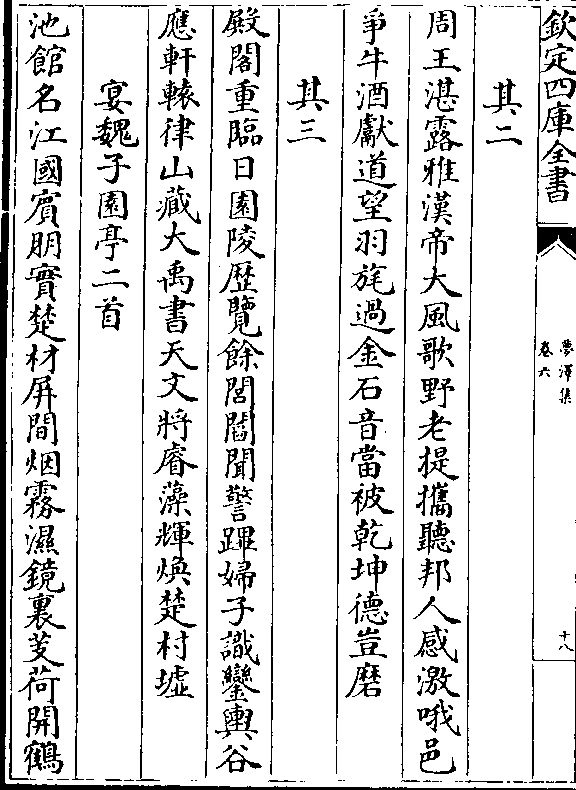 欽定四庫全書
夢澤集
卷六
十八
其二
周王湛露雅漢帝大風歌野老提攜聽邦人感激哦邑
爭牛酒獻道望羽旄過金石音當被乾坤德豈磨
其三
殿閣重臨日園陵歴覽餘閭閻聞警蹕婦子識鑾輿谷
應軒轅律山藏大禹書天文將睿藻輝煥楚村墟
宴魏子園亭二首
池館名江國賔朋實楚材屏間烟霧濕鏡裏芰荷開鶴